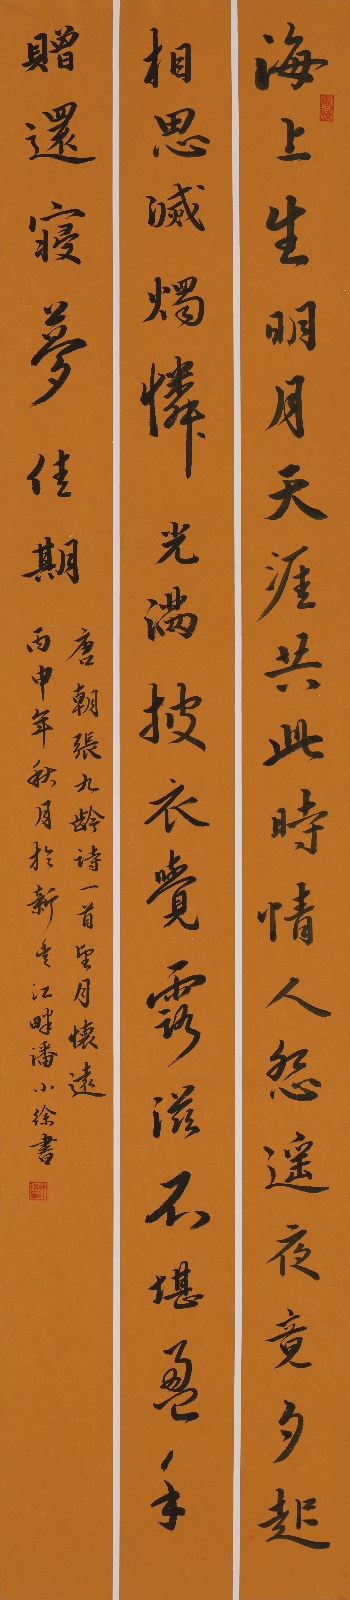 海上生明月天涯共此時情人怨遥夜竟夕起
相思滅燭憐光滿披衣覺露滋不堪盈手
贈還寝夢佳期
唐朝張九龄詩一首望月懷遠
丙申年秋月於新安江畔潘小徐書